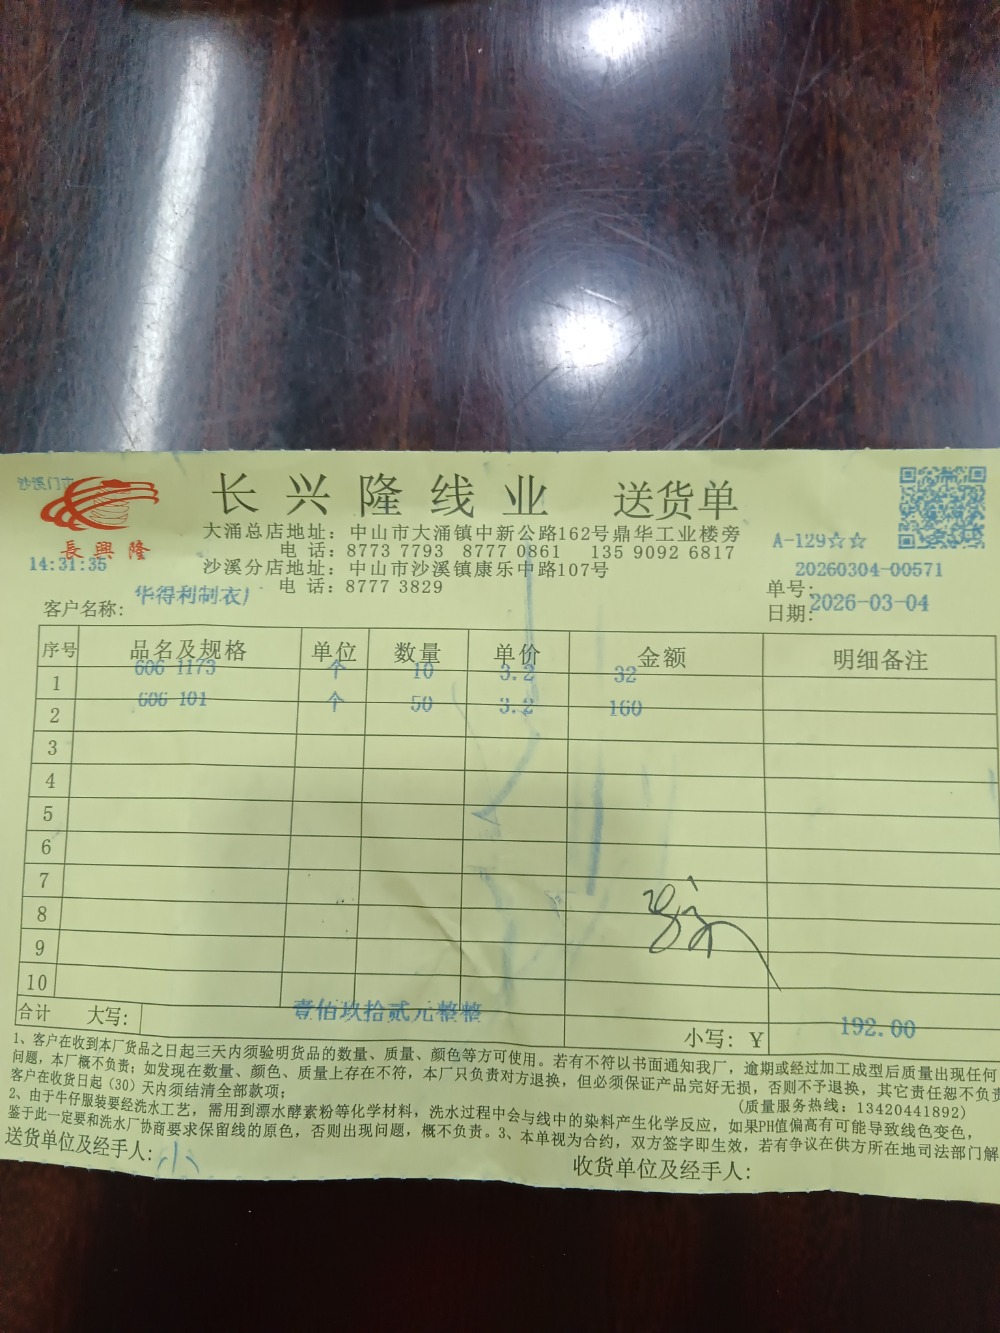 長興隆
长兴隆线业 送货单
大涌总店地址：中山市大涌镇中新公路162号鼎华工业楼旁
电 话：8773 7793 8777 0861 135 9092 6817
A-129☆☆
沙溪分店地址：中山市沙溪镇康乐中路107号
14:31:35
单号：20260304-00571
电 话：8777 3829
客户名称：华得利制衣厂
日期：2026-03-04
序号 品名及规格 单位 数量 单价 金额 明细备注
1 606 1173 个 10 3.2 32
2 606 101 个 50 3.2 160
3
4
5
6
7
8
9
10
合计 大写：壹佰玖拾贰元整整 小写：￥ 192.00
1、客户在收到本厂货品之日起三天内须验明货品的数量、质量、颜色等方可使用。若有不符以书面通知我厂，逾期或经过加工成型后质量出现任何
问题，本厂概不负责；如发现在数量、颜色、质量上存在不符，本厂只负责对方退换，但必须保证产品完好无损，否则不予退换，其它责任恕不负责
客户在收货日起（30）天内须结清全部款项；
（质量服务热线：13420441892）
2、由于牛仔服装要经洗水工艺，需用到漂水酵素粉等化学材料，洗水过程中会与线中的染料产生化学反应，如果PH值偏高有可能导致线色变色，
鉴于此一定要和洗水厂协商要求保留线的原色，否则出现问题，概不负责。3、本单视为合约，双方签字即生效，若有争议在供方所在地司法部门解
送货单位及经手人：小
收货单位及经手人：